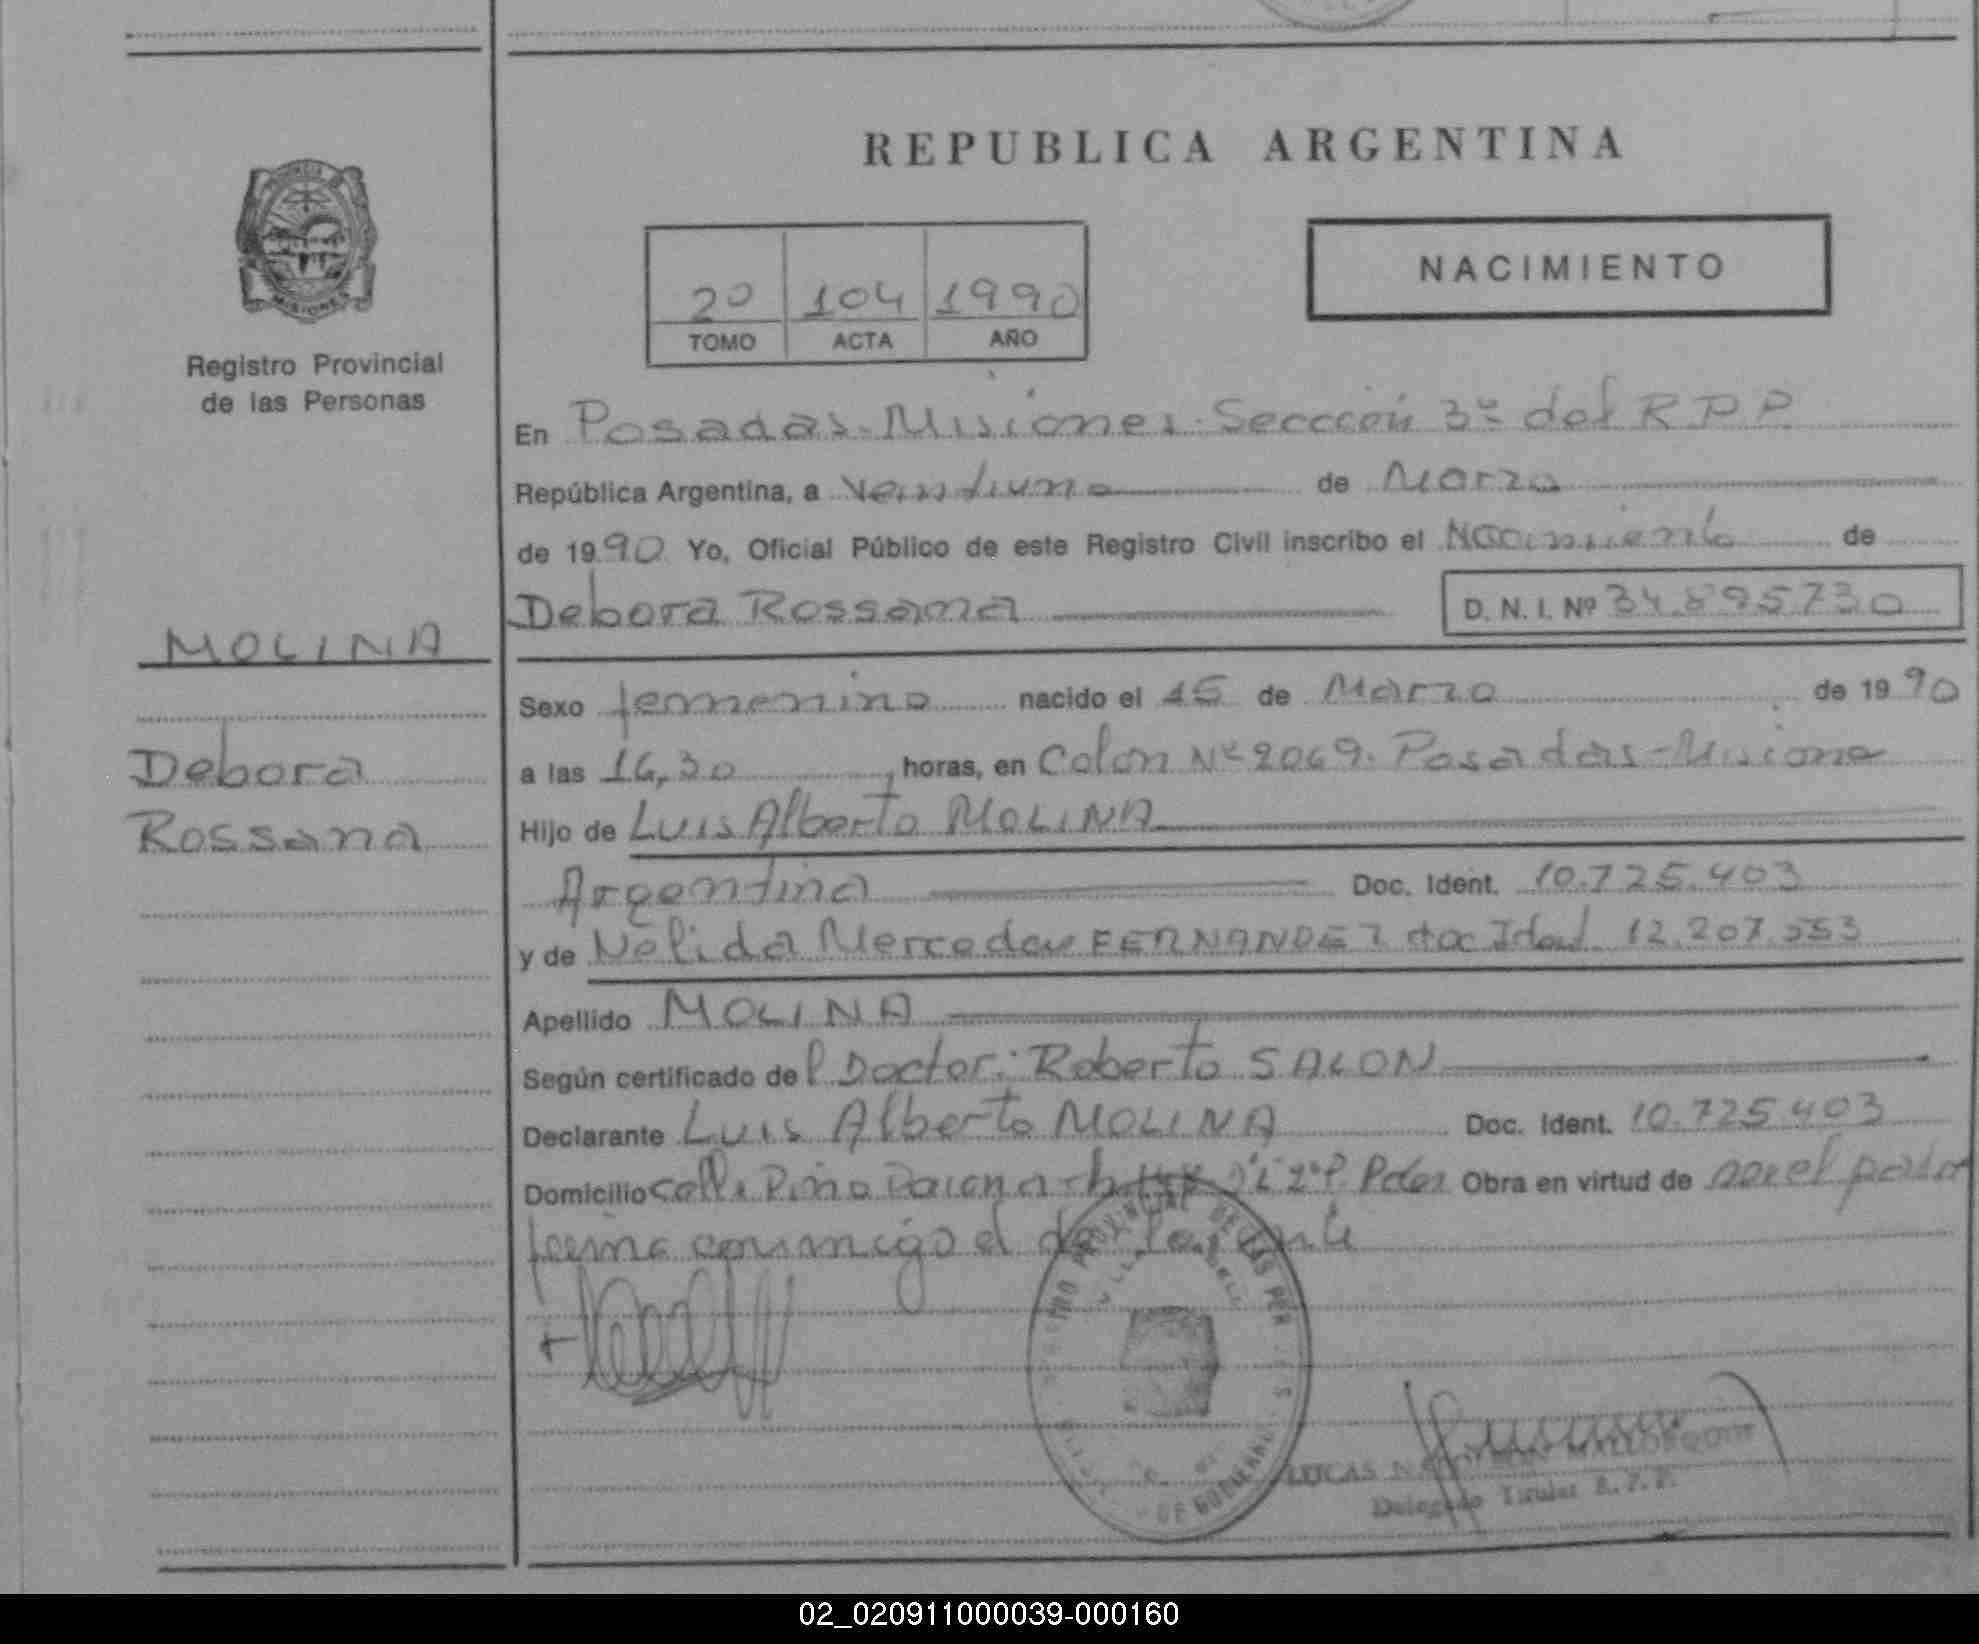 REPUBLICA ARGENTINA
NACIMIENTO
20 104 1990
TOMO ACTA AÑO
MISIONES
Registro Provincial
de las Personas
En Posadas-Misiones-Sección 3º del R P P.
República Argentina, a Veintiuno de Marzo
de 1990 Yo, Oficial Público de este Registro Civil inscribo el Nacimiento de
Debora Rossana D. N. I. Nº 34.895730
MOLINA
Debora
Rossana
Sexo femenino nacido el 15 de Marzo de 1990
a las 16,30 horas, en Colon Nº 2069. Posadas-Misione
Hijo de Luis Alberto MOLINA
Argentina Doc. Ident. 10.725.403
y de Nelida Mercedes FERNANDEZ doc Ident 12.207.553
Apellido MOLINA
Según certificado del Doctor: Roberto SALON
Declarante Luis Alberto MOLINA Doc. Ident. 10.725.403
Domicilio calle Obra en virtud de
conmigo el declarante
REGISTRO PROVINCIAL DE LAS PER
DE GOBIERNO
LUCAS
Delegado Titular R. P. P.
02_020911000039-000160